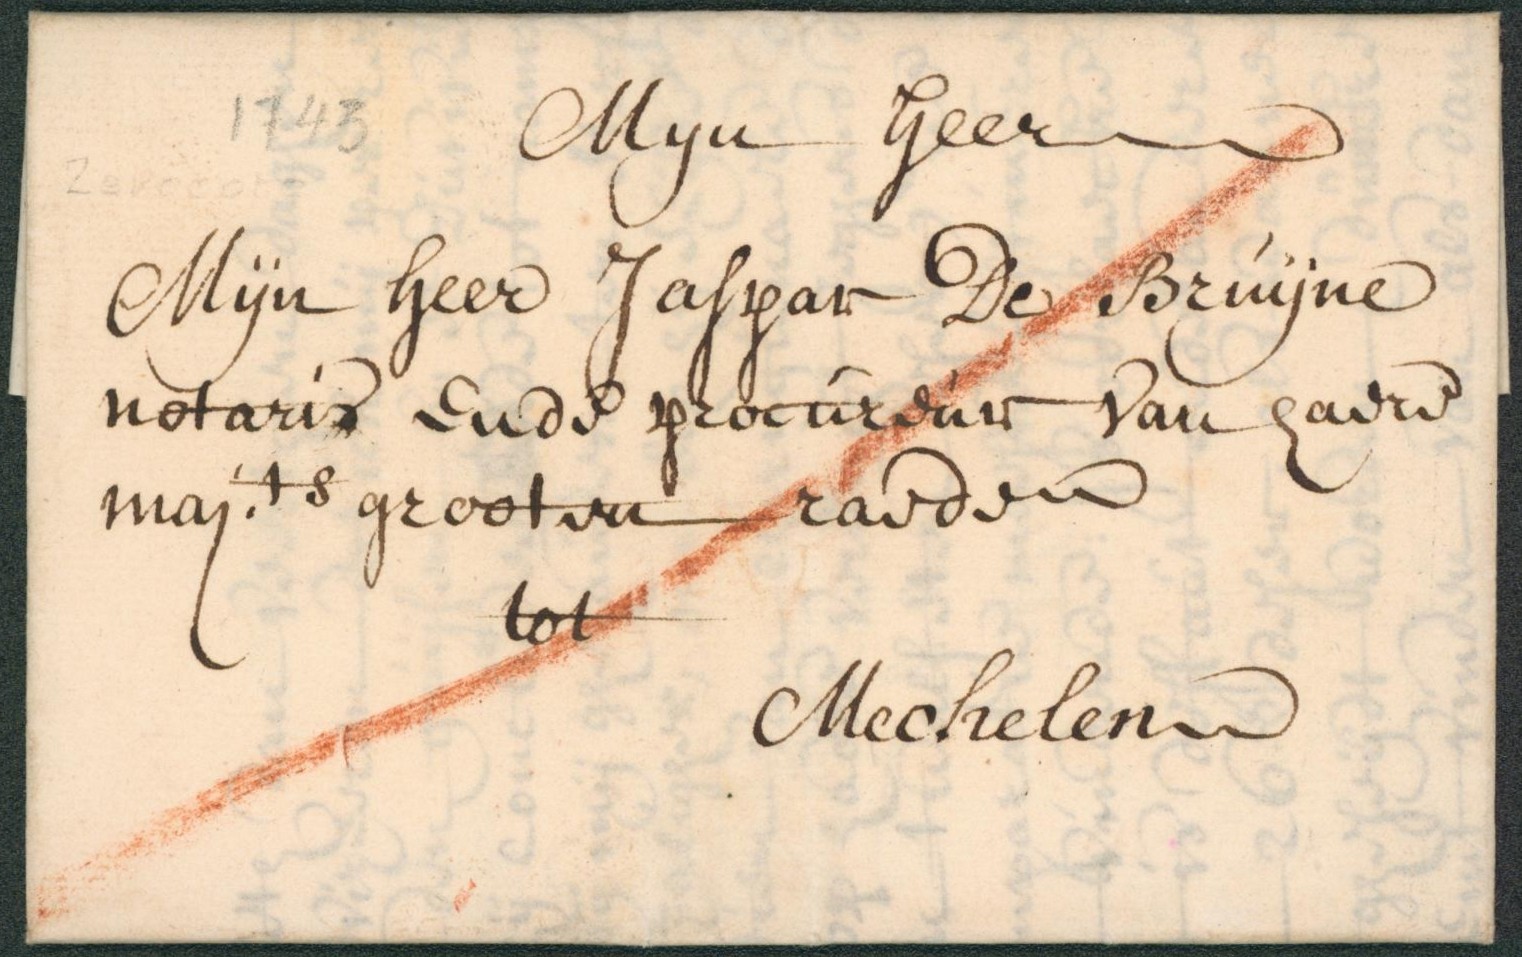 1743
Myn heer
Mijn heer Jaspar De Bruijne
notaris Ende procureur van haere
maj.ts grooten raeden
tot
Mechelen